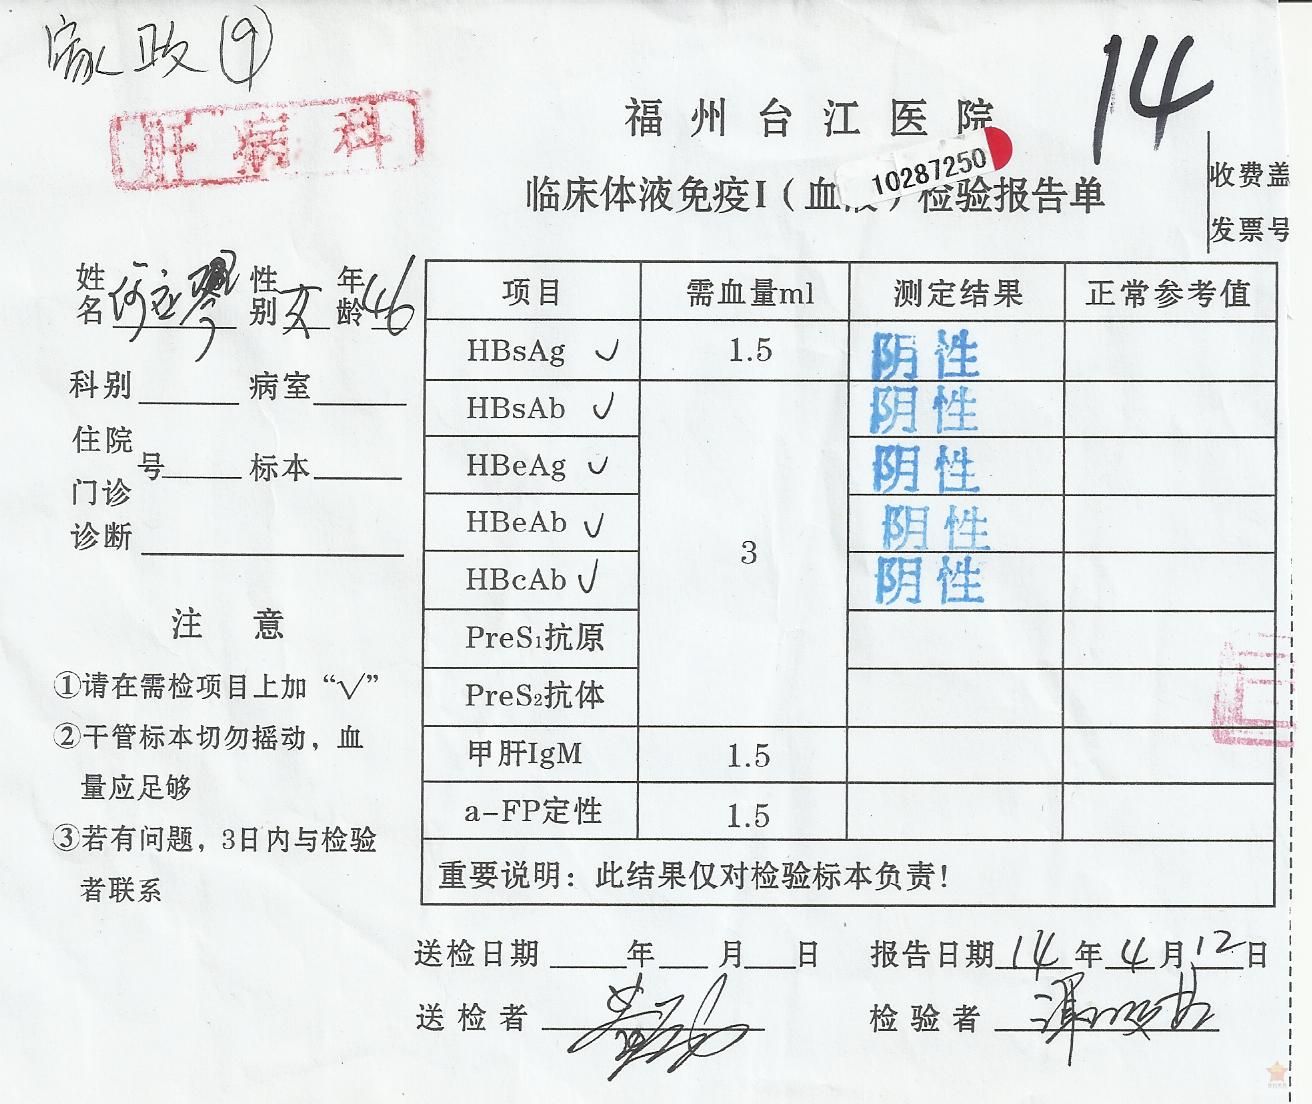 家政(9)
14
肝病科
福州台江医院
10287250
临床体液免疫I(血液)检验报告单
收费盖
发票号
姓名 性别 女 年龄 46
科别 病室
住院
门诊 号 标本
诊断
注 意
①请在需检项目上加“√”
②干管标本切勿摇动，血
量应足够
③若有问题，3日内与检验
者联系
项目 需血量ml 测定结果 正常参考值
HBsAg ✓ 1.5 阴性
HBsAb ✓ 阴性
HBeAg ✓ 阴性
HBeAb ✓ 3 阴性
HBcAb ✓ 阴性
PreS₁抗原
PreS₂抗体
甲肝IgM 1.5
a-FP定性 1.5
重要说明：此结果仅对检验标本负责！
送检日期 年 月 日 报告日期 14 年 4 月 12 日
送检者 检验者